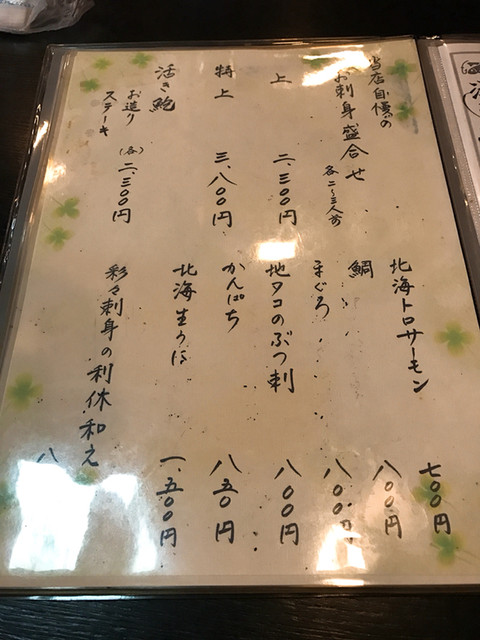 当店自慢の
お刺身盛合せ
各二〜三人前
上 二、三〇〇円
特上 三、八〇〇円
活き鮑
お造り
ステーキ
(各) 二、三〇〇円
北海トロサーモン 七〇〇円
鯛 八〇〇円
まぐろ 八〇〇円
地タコのぶつ刺 八〇〇円
かんぱち 八五〇円
北海生うに 一、五〇〇円
彩々刺身の利休和え 八